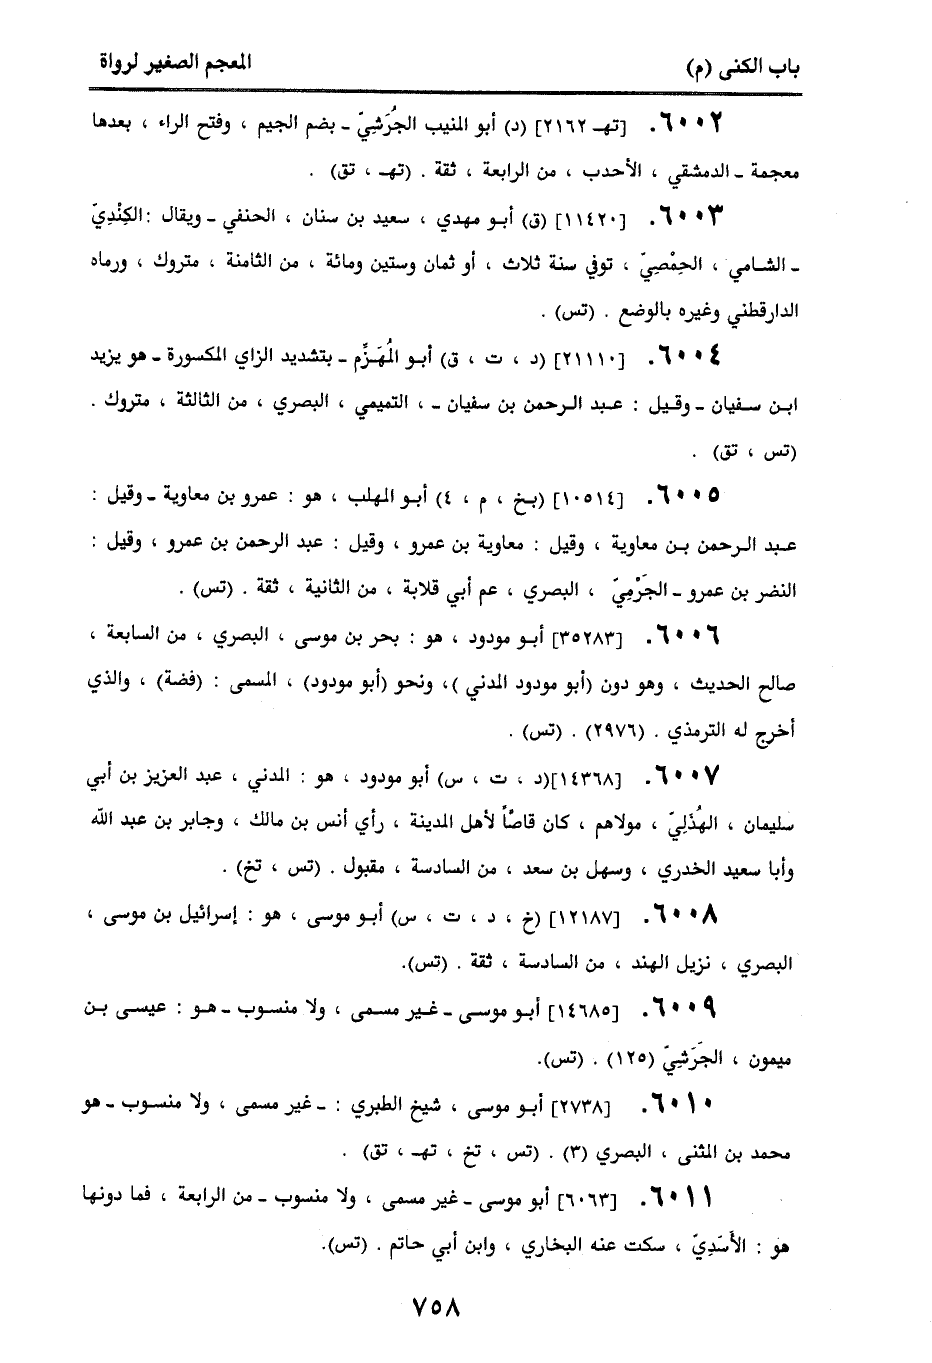 باب الكنى (م)
المعجم الصغير لرواة
٦٠٠٢. [تهـ ٢١٦٢] (د) أبو المنيب الجُرَشِيّ ـ بضم الجيم ، وفتح الراء ، بعدها
معجمة ـ الدمشقي ، الأحدب ، من الرابعة ، ثقة . (تهـ ، تق) .
٦٠٠٣. [١١٤٢٠] (ق) أبو مهدي ، سعيد بن سنان ، الحنفي ـ ويقال : الكِنْدِيّ
ـ الشامي ، الحِمْصِيّ ، توفي سنة ثلاث ، أو ثمان وستين ومائة ، من الثامنة ، متروك ، ورماه
الدارقطني وغيره بالوضع . (تس) .
٦٠٠٤. [٢١١١٠] (د ، ت ، ق) أبو المُهَزِّم ـ بتشديد الزاي المكسورة ـ هو يزيد
ابن سفيان ـ وقيل : عبد الرحمن بن سفيان ـ ، التميمي ، البصري ، من الثالثة ، متروك .
(تس ، تق) .
٦٠٠٥. [١٠٥١٤] (بخ ، م ، ٤) أبو المهلب ، هو : عمرو بن معاوية ـ وقيل :
عبد الرحمن بن معاوية ، وقيل : معاوية بن عمرو ، وقيل : عبد الرحمن بن عمرو ، وقيل :
النضر بن عمرو ـ الجَرْمِيّ ، البصري ، عم أبي قلابة ، من الثانية ، ثقة . (تس) .
٦٠٠٦. [٣٥٢٨٣] أبو مودود ، هو : بحر بن موسى ، البصري ، من السابعة ،
صالح الحديث ، وهو دون (أبو مودود المدني )، ونحو (أبو مودود) ، المسمى : (فضة) ، والذي
أخرج له الترمذي . (٢٩٧٦) . (تس) .
٦٠٠٧. [١٤٣٦٨](د ، ت ، س) أبو مودود ، هو : المدني ، عبد العزيز بن أبي
سليمان ، الهُذَلِيّ ، مولاهم ، كان قاصّاً لأهل المدينة ، رأي أنس بن مالك ، وجابر بن عبد الله
وأبا سعيد الخدري ، وسهل بن سعد ، من السادسة ، مقبول . (تس ، تخ) .
٦٠٠٨. [١٢١٨٧] (خ ، د ، ت ، س) أبو موسى ، هو : إسرائيل بن موسى ،
البصري ، نزيل الهند ، من السادسة ، ثقة . (تس).
٦٠٠٩. [١٤٦٨٥] أبو موسى ـ غير مسمى ، ولا منسوب ـ هو : عيسى بن
ميمون ، الجَرَشِيّ (١٢٥) . (تس).
٦٠١٠. [٢٧٣٨] أبو موسى ، شيخ الطبري : ـ غير مسمى ، ولا منسوب ـ هو
محمد بن المثنى ، البصري (٣) . (تس ، تخ ، تهـ ، تق) .
٦٠١١. [٦٠٦٣] أبو موسى ـ غير مسمى ، ولا منسوب ـ من الرابعة ، فما دونها
هو : الأَسَدِيّ ، سكت عنه البخاري ، وابن أبي حاتم . (تس).
٧٥٨